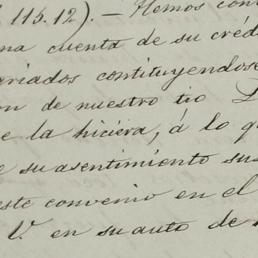 115.12).- Hemos cont
na cuenta de su créd
ariados contituyendose
on de nuestro tio
e la hiciera, á lo q
e su asentimiento sus
este convenio en el
V. en su auto de